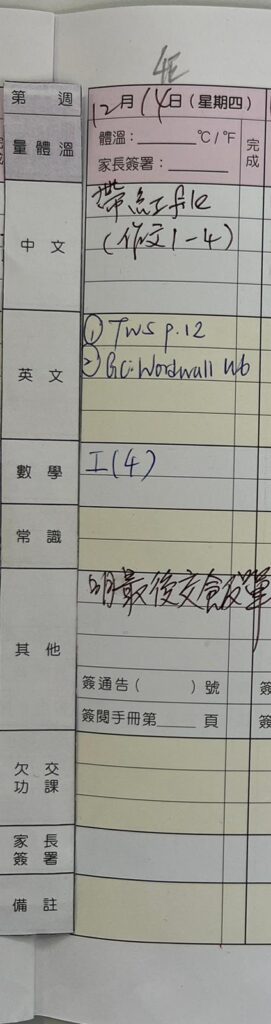 4E
第 週
12月14日(星期四)
量體溫
體溫:______℃/℉
家長簽署:______
完成
中文
帶紅file
(作文1-4)
英文
① TWS p.12
② GC: Wordwall wb
數學
I(4)
常識
其他
明最後交飯單
簽通告( )號
簽閱手冊第____頁
欠交功課
家長簽署
備註